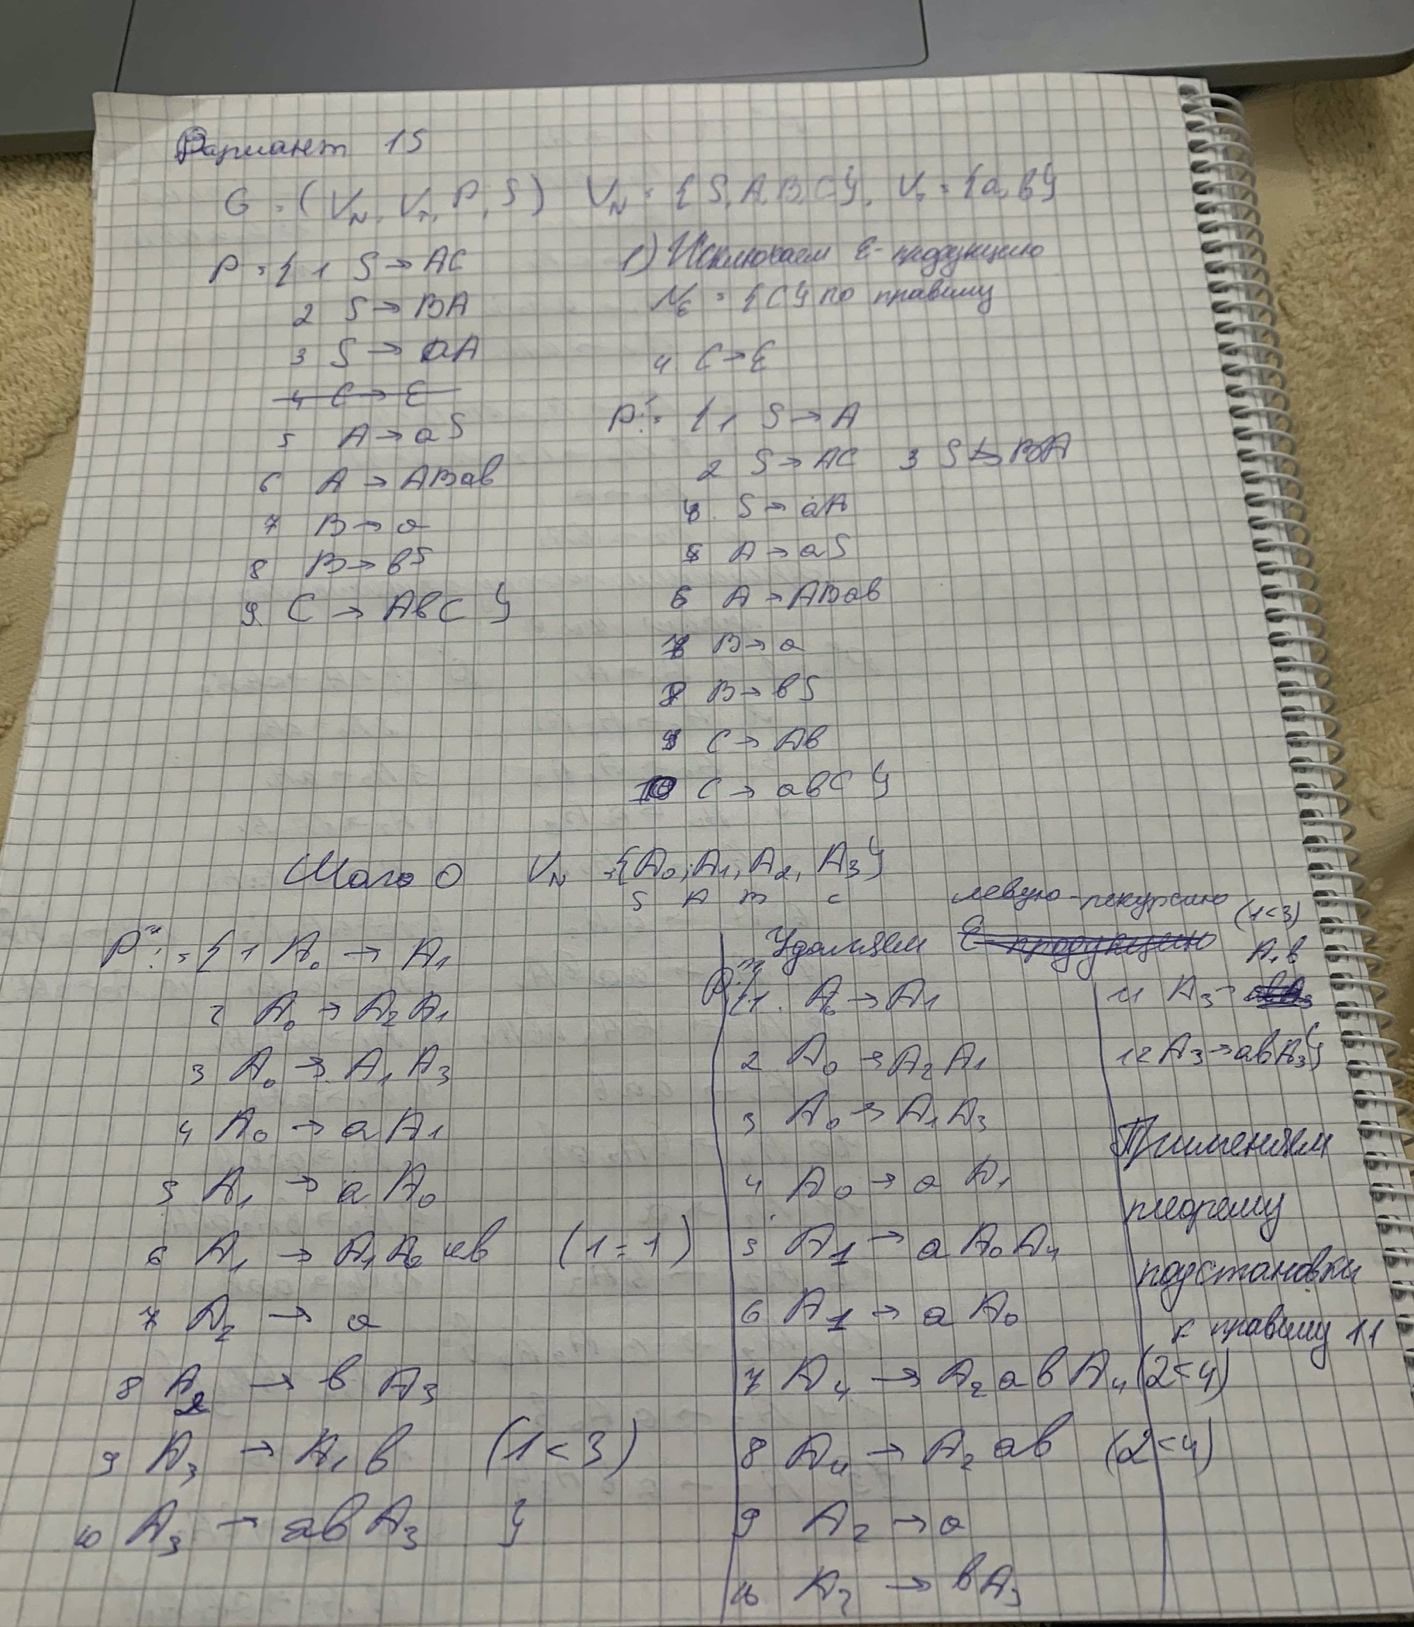 Вариант 15
G = (V_N, V_T, P, S) V_N = {S, A, B, C}, V_T = {a, b}
P = { 1 S → AC
2 S → BA
3 S → aA
4 C → ε
5 A → aS
6 A → ABab
7 B → a
8 B → bS
9. C → AbC }
1) Исключаем ε-продукцию
N_ε = {C} по правилу
4 C → ε
P' := { 1, S → A
2 S → AC 3 S → BA
4. S → aA
5 A → aS
6 A → ABab
7 B → a
8 B → bS
9 C → Ab
10 C → abC }
Шаг 0 V_N = {A₀, A₁, A₂, A₃}
S A B C
P'' := { 1 A₀ → A₁
2 A₀ → A₂A₁
3 A₀ → A₁A₃
4 A₀ → aA₁
5 A₁ → aA₀
6 A₁ → A₁A₂ab (1=1)
7 A₂ → a
8 A₂ → bA₃
9 A₃ → A₁b (1<3)
10 A₃ → abA₃ }
левую-рекурсию
Удаляем ε-продукцию
P''' {1. A₀ → A₁
2 A₀ → A₂A₁
3 A₀ → A₁A₃
4 A₀ → aA₁
5 A₁ → aA₀A₄
6 A₁ → aA₀
7 A₄ → A₂abA₄ (2<4)
8 A₄ → A₂ab (2<4)
9 A₂ → a
10 A₂ → bA₃
(1<3)
A₁b
11 A₃ →
12 A₃ → abA₃}
Применяем
теорему
подстановки
к правилу 11